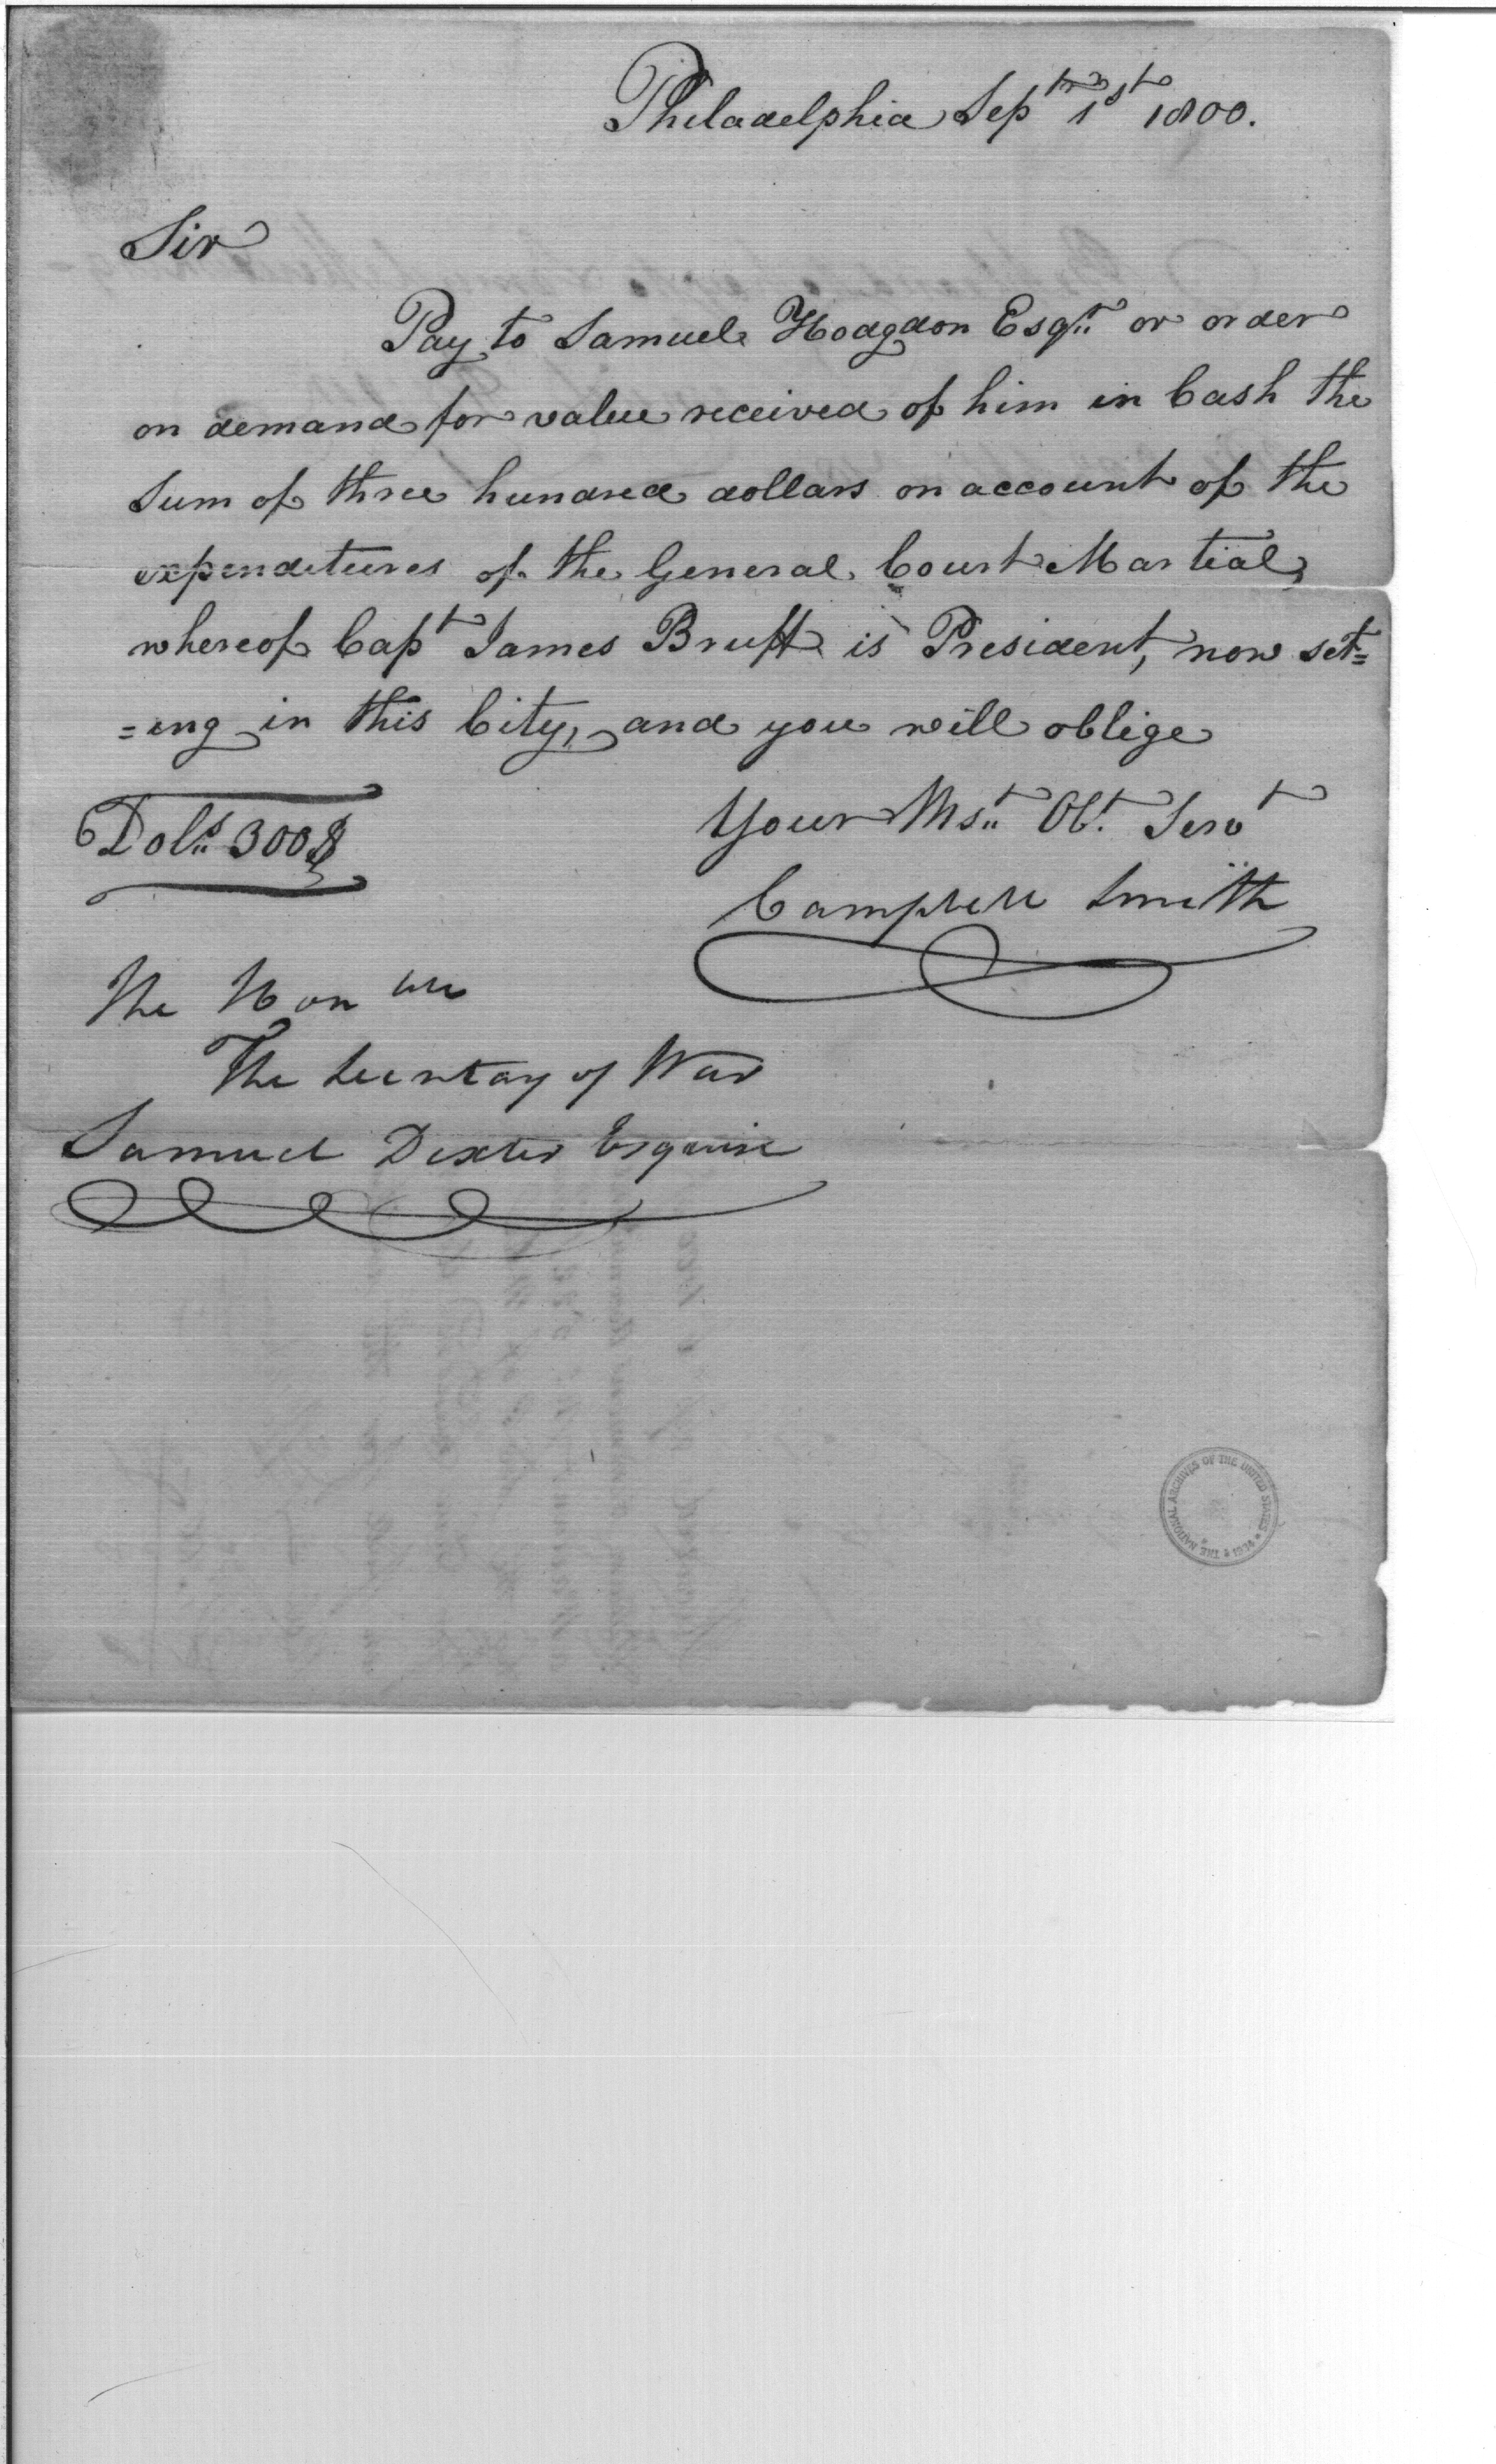 Philadelphia Sepᵗʳ 1ˢᵗ 1800.
Sir
Pay to Samuel Hodgdon Esqʳ. or order
on demand for value received of him in Cash the
Sum of three hundred dollars on account of the
expenditures of the General Court Martial,
whereof Capᵗ James Bruff is President, now set=
=ing in this City, and you will oblige
Dolˢ. 300$
Your Msᵗ. Obᵗ. Servᵗ
Campbell Smith
The Honᵇˡᵉ
The Secretary of War
Samuel Dexter Esquire
THE NATIONAL ARCHIVES OF THE UNITED STATES * 1934 *